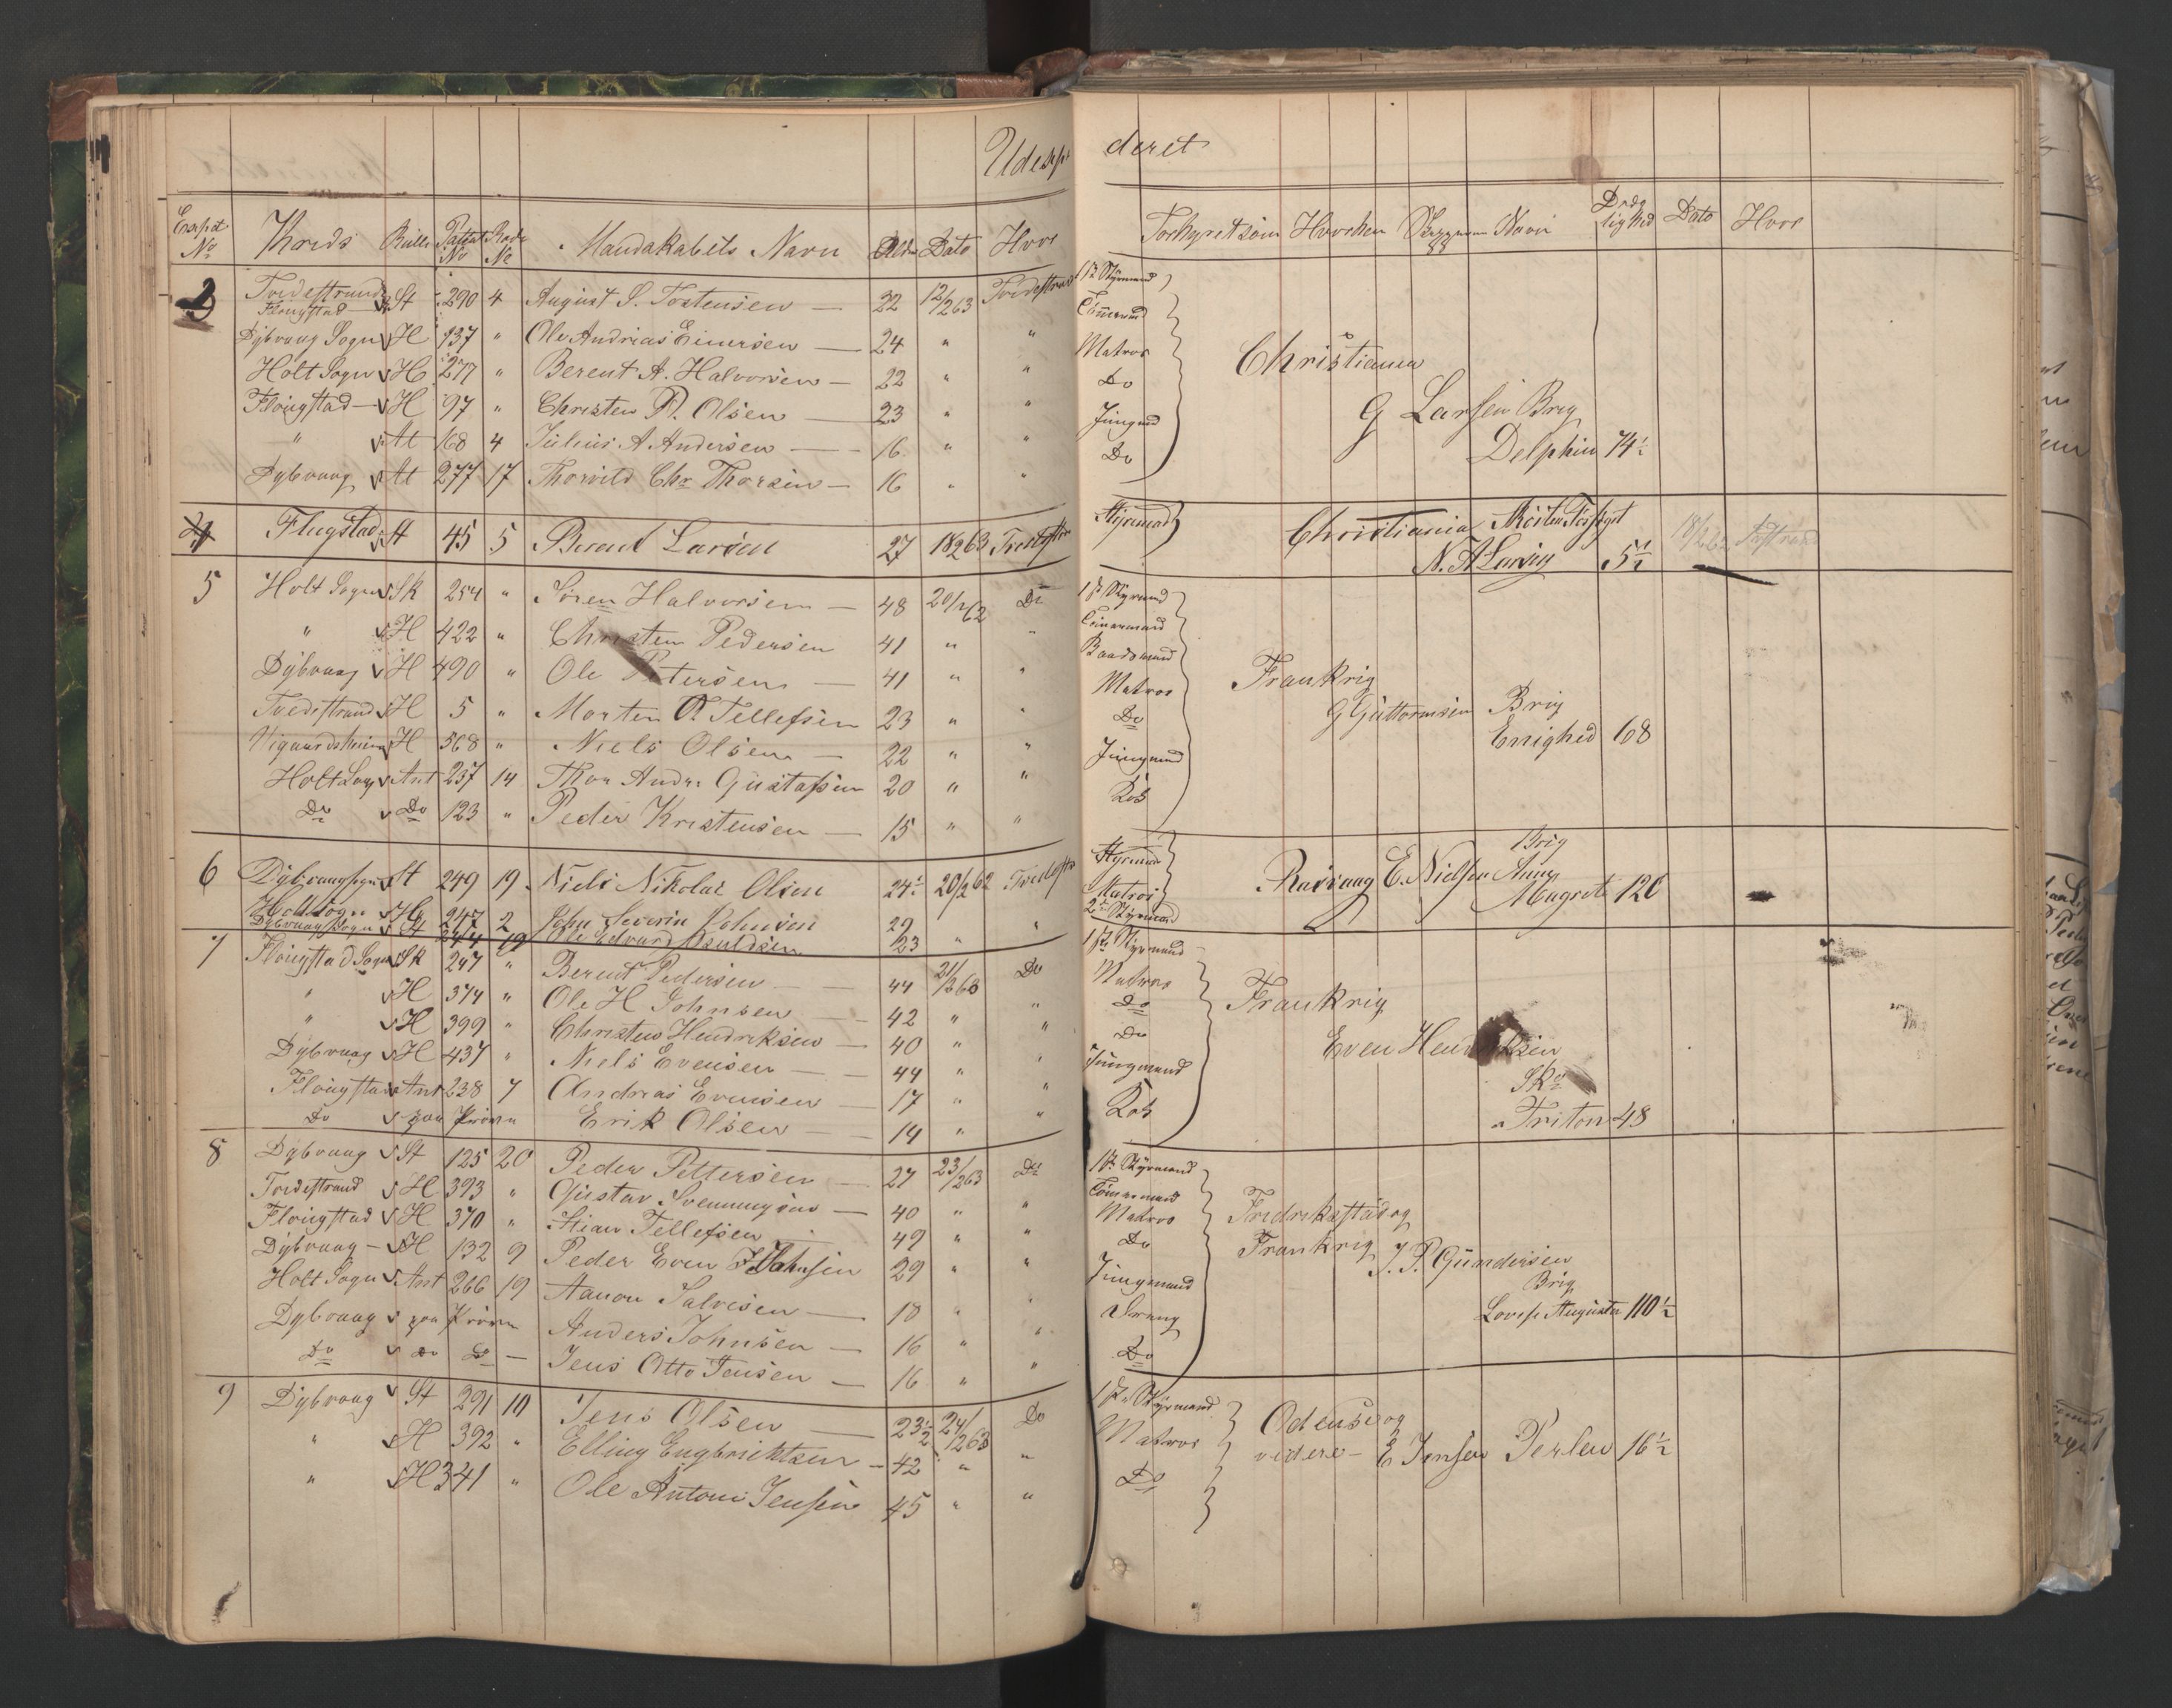 Udexp deret
Expd No Kreds Rulle Patent No Rode No Mandskabets Navn Alder Dato Hvor Forhyret som Hvorhen Skipperens Navn Drægtighed Dato Hvor
3 Tvedestrand St 290 4 August S. Tostensen — 22 12/2 63 Tvedestrand 1ste Styrmand
Flougstad
Dÿbvaag Sogn H 937 " Ole Andrias Einersen — 24 " " Tömermand
Holt Sogn H 277 " Berent A. Halvorsen — 22 " " Matros Christiania
Flougstad — H 97 " Christen P. Olsen — 23 " " Do G Larsen Brig
" At 168 4 Julius A Andersen — 16 " " Jüngmd Delphin 74½
Dybvaag At 277 17 Thorvild Chr Thorsen — 16 " " Do
4 Flugstad St 45 5 Berent Larsen 27 18/2 63 Styrmand Christiania N. A Larsen 5½ 18/2
5 Holt Sogn Sk 254 " Sören Halvorsen — 48 20/2 62 Do 1ste Styrmand
" H 422 " Christen Pedersen 41 " " Tömermand
Dÿbvaag H 490 " Ole Petersen — 41 " " Baadsmand Frankrig
Tvedestrand H 5 " Morten O Tellefsen 23 " " Matros G Güttormsen Brig
H 568 " Niels Olsen — 22 " " Do Enighed 68
Holt Sogn Ant 237 14 Thor Andr. Güstafsen 20 " " Jüngmand
Do Do 123 " Peder Kristensen — 15 " " Kok
6 Dÿbvaagsogn St 249 19 Niels Nikolai Olsen 24½ 20/2 62 Styrmand E. Nielsen Brig Anne Magrete 126
Holt Sogn H 247 2 John Severin Johnsen 29 Matros
Dybvaag Sogn St 244 19 Ole Edvard 23 " " 2den Styrmand
7 Flougstad Sogn Sk 247 " Berent Pedersen — 44 21/2 63 Do 1ste Styrmand
" H 374 " Ole H Johnsen — 42 " " Matros Frankrig
" H 399 " Christen Hendriksen — 40 " " Do
Dÿbvaag H 437 " Niels Evensen — 44 " " Do Even Hendriksen
Flougstad Ant 238 7 Andreas Evensen — 17 " " Jüngmand Sk
Do paa Pröve Erik Olsen — 14 " " Kok Triton 48
8 Dÿbvaag St 125 20 Peder Pettersen — 27 23/2 63 Do 1ste Styrmand
Tvedestrand H 393 " Güstav Svenningsen — 40 " " Tömermand
Flougstad H 370 " Stian Tellefsen — 49 " " Matros Fredrikstad og
Dÿbvaag — H 132 9 Peder Even Johnsen 29 " " Do Frankrig J. P. Gündersen
Holt Sogn Ant 266 19 Aanon Salvesen — 18 " " Jüngmand Brig
Dybvaag paa Pröve Anders Johnsen — 16 " " Dreng Lovise Augusta 110½
Do Do Do — Jens Otto Jensen — 16 " " Do
9 Dÿbvaag St 291 10 Jens Olsen — 23½ 24/2 63 Do 1ste Styrmand Odense og
" H 392 " Elling Engbrichtsen — 42 " " Matros videre — E Jensen Perlen 16½
" H 341 " Ole Antoni Jensen 45 " " Do